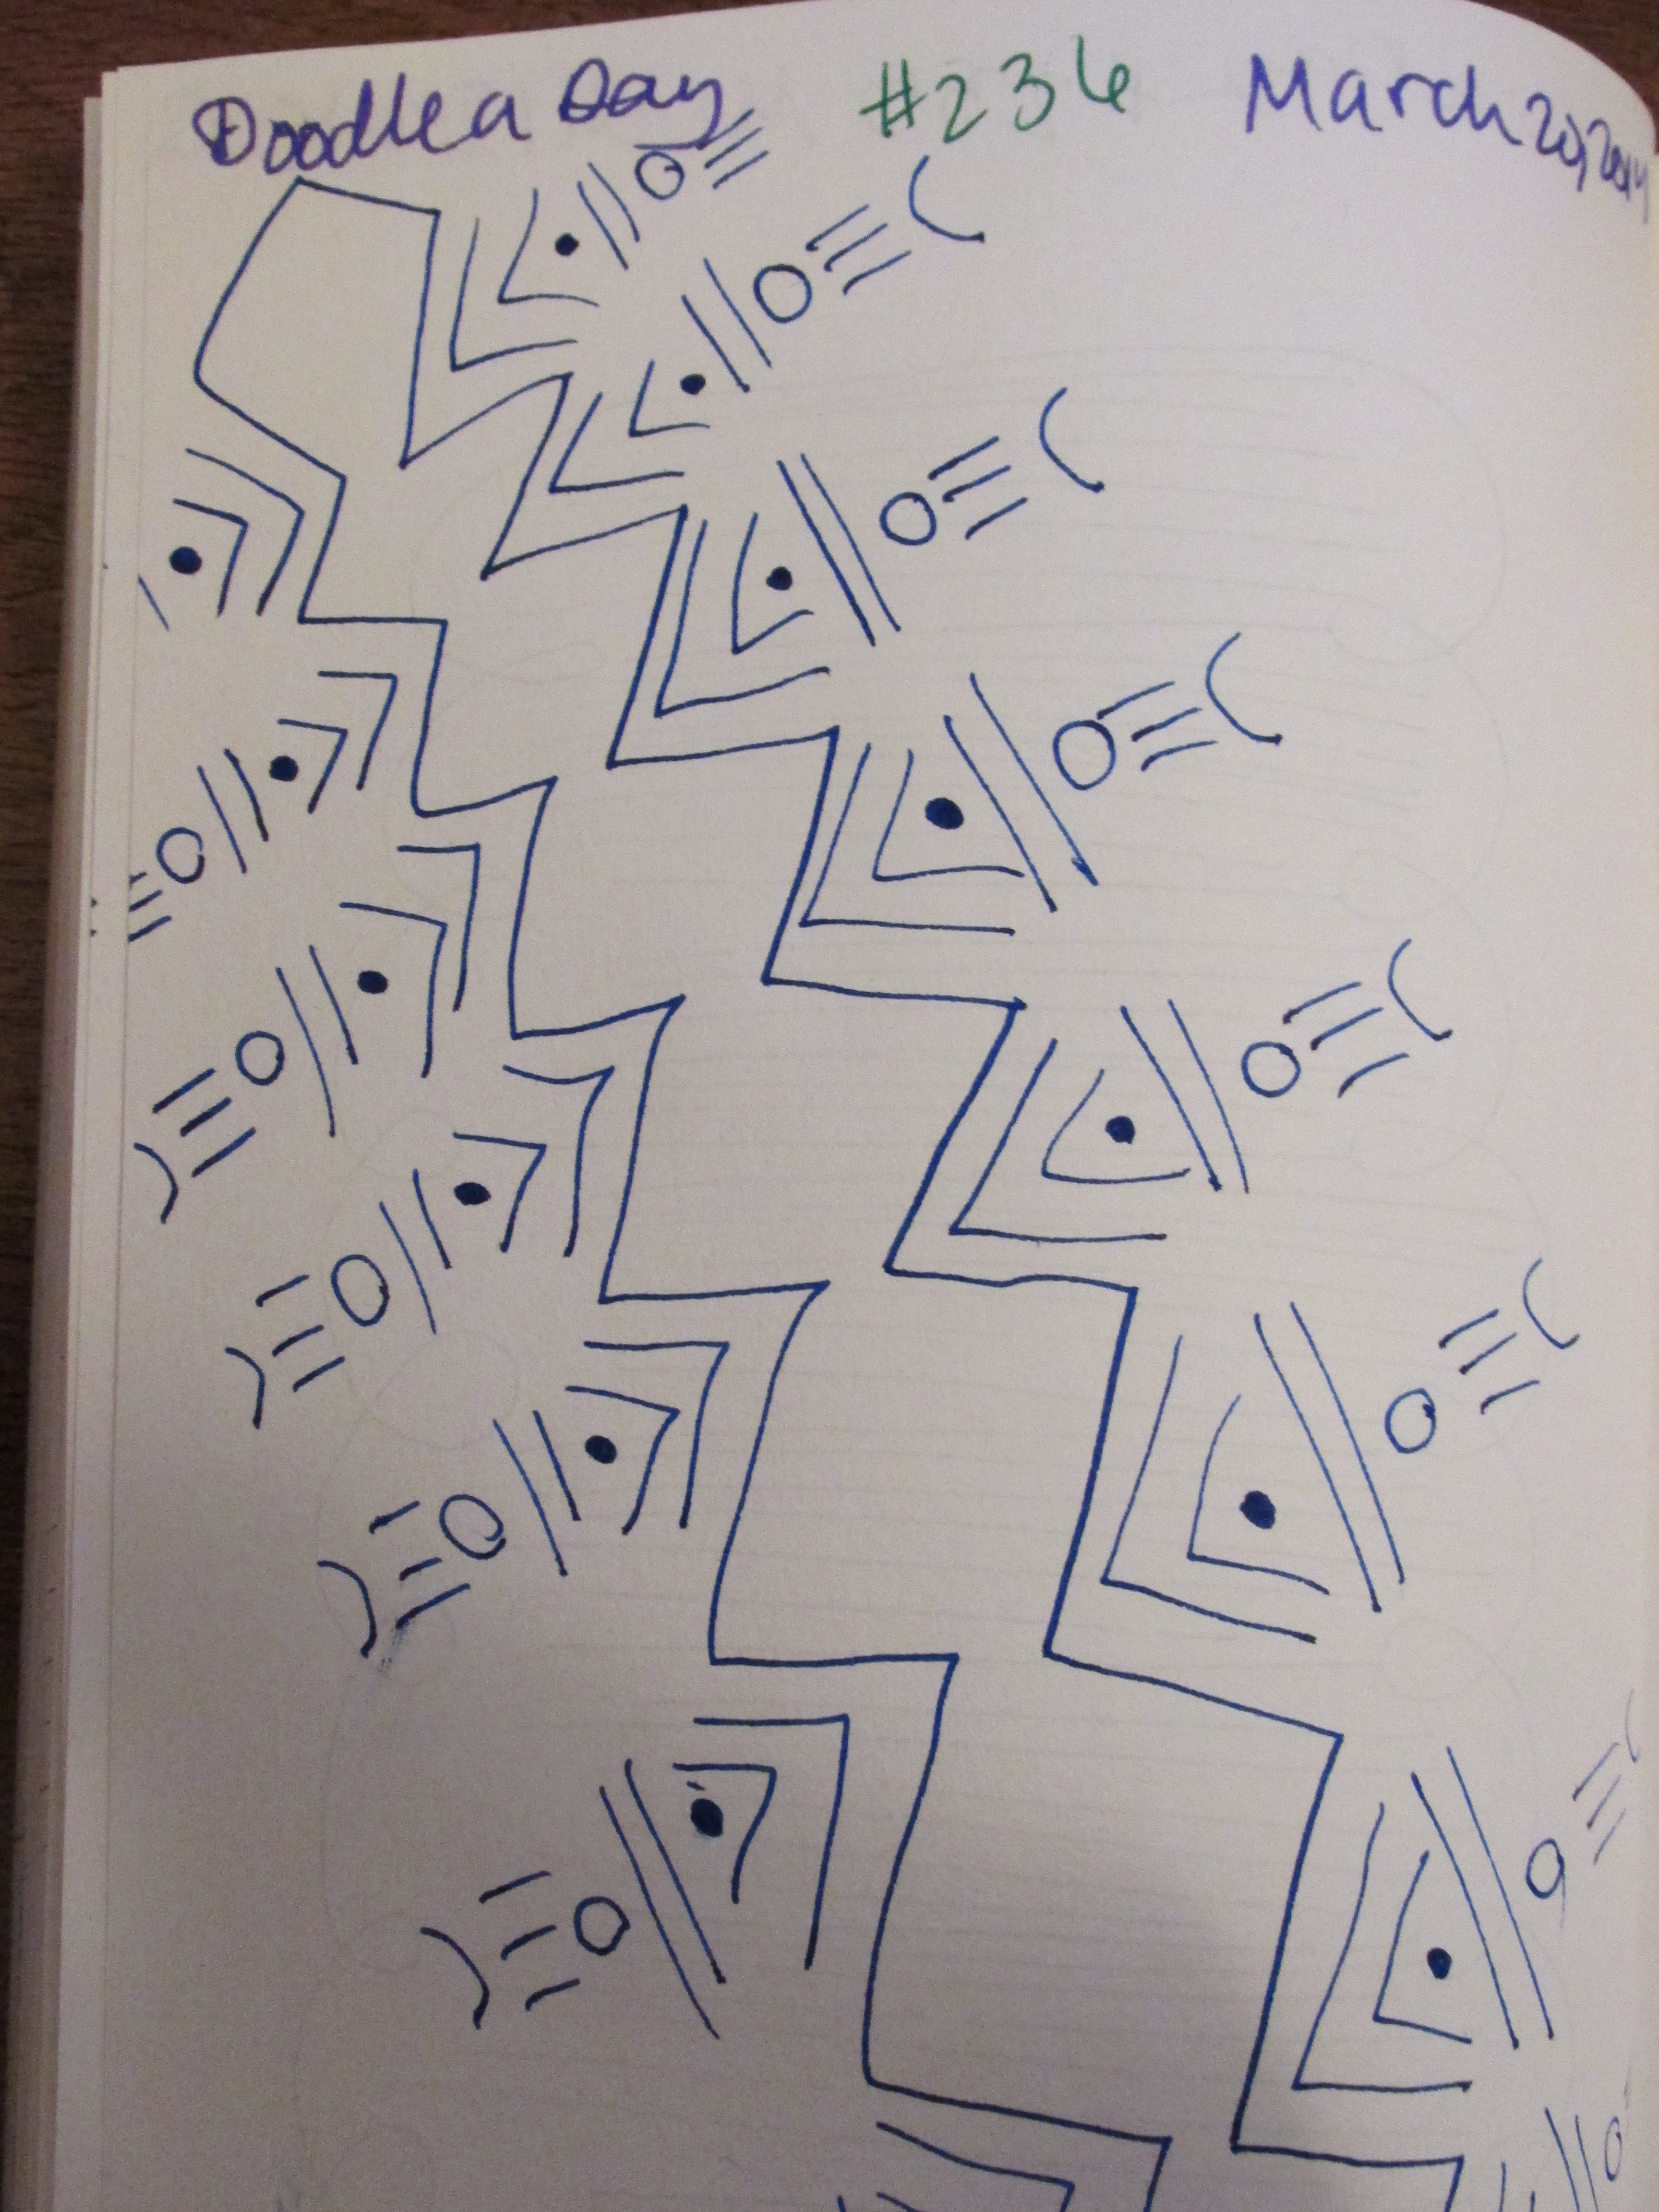 Doodle a Day #236 March 20, 2014